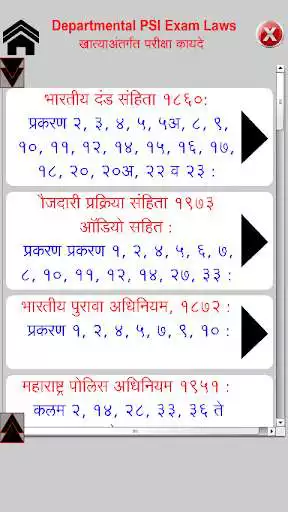 Departmental PSI Exam Laws
खात्याअंतर्गत परीक्षा कायदे
भारतीय दंड संहिता १८६०:
प्रकरण २, ३, ४, ५, ५अ, ८, ९,
१०, ११, १२, १४, १५, १६, १७,
१८, २०, २०अ, २२ व २३ :
ौजदारी प्रक्रिया संहिता १९७३
ऑडियो सहित :
प्रकरण प्रकरण १, २, ४, ५, ६, ७,
८, १०, ११, १२, १४, २७, ३३ :
भारतीय पुरावा अधिनियम, १८७२ :
प्रकरण १, २, ४, ५, ७, ९, १० :
महाराष्ट्र पोलिस अधिनियम १९५१ :
कलम २, १४, २८, ३३, ३६ ते